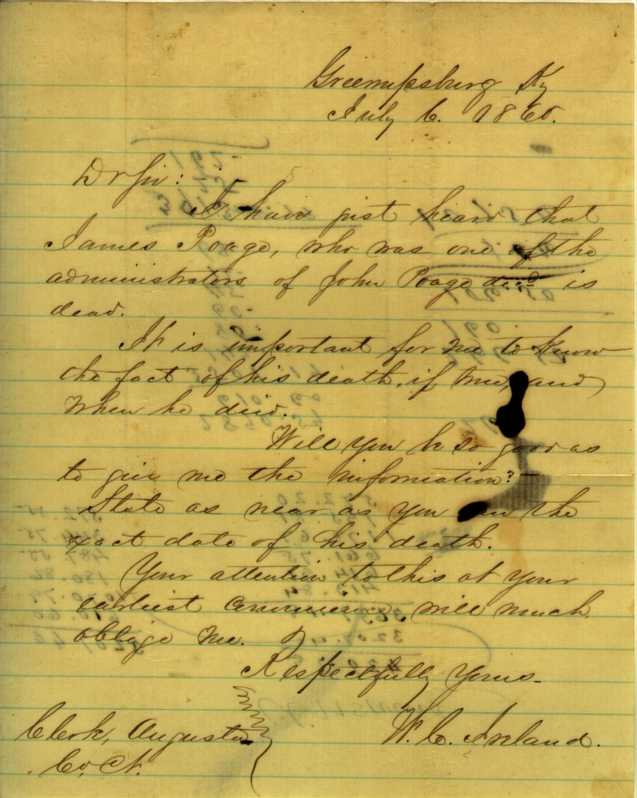 Greenupsburg Ky
July 6. 1860.
Dr Sir:
I have just heard that
James Poage, who was one of the
administrators of John Poage decd is
dead.
It is important for me to know
the fact of his death, if true, and
when he died.
Will you be so good as
to give me the information?
State as near as you can the
exact date of his death.
Your attention to this at your
earliest convenience will much
oblige me.
Respectfully Yours
W. C. Ireland.
Clerk, Augusta
Co. Ct.